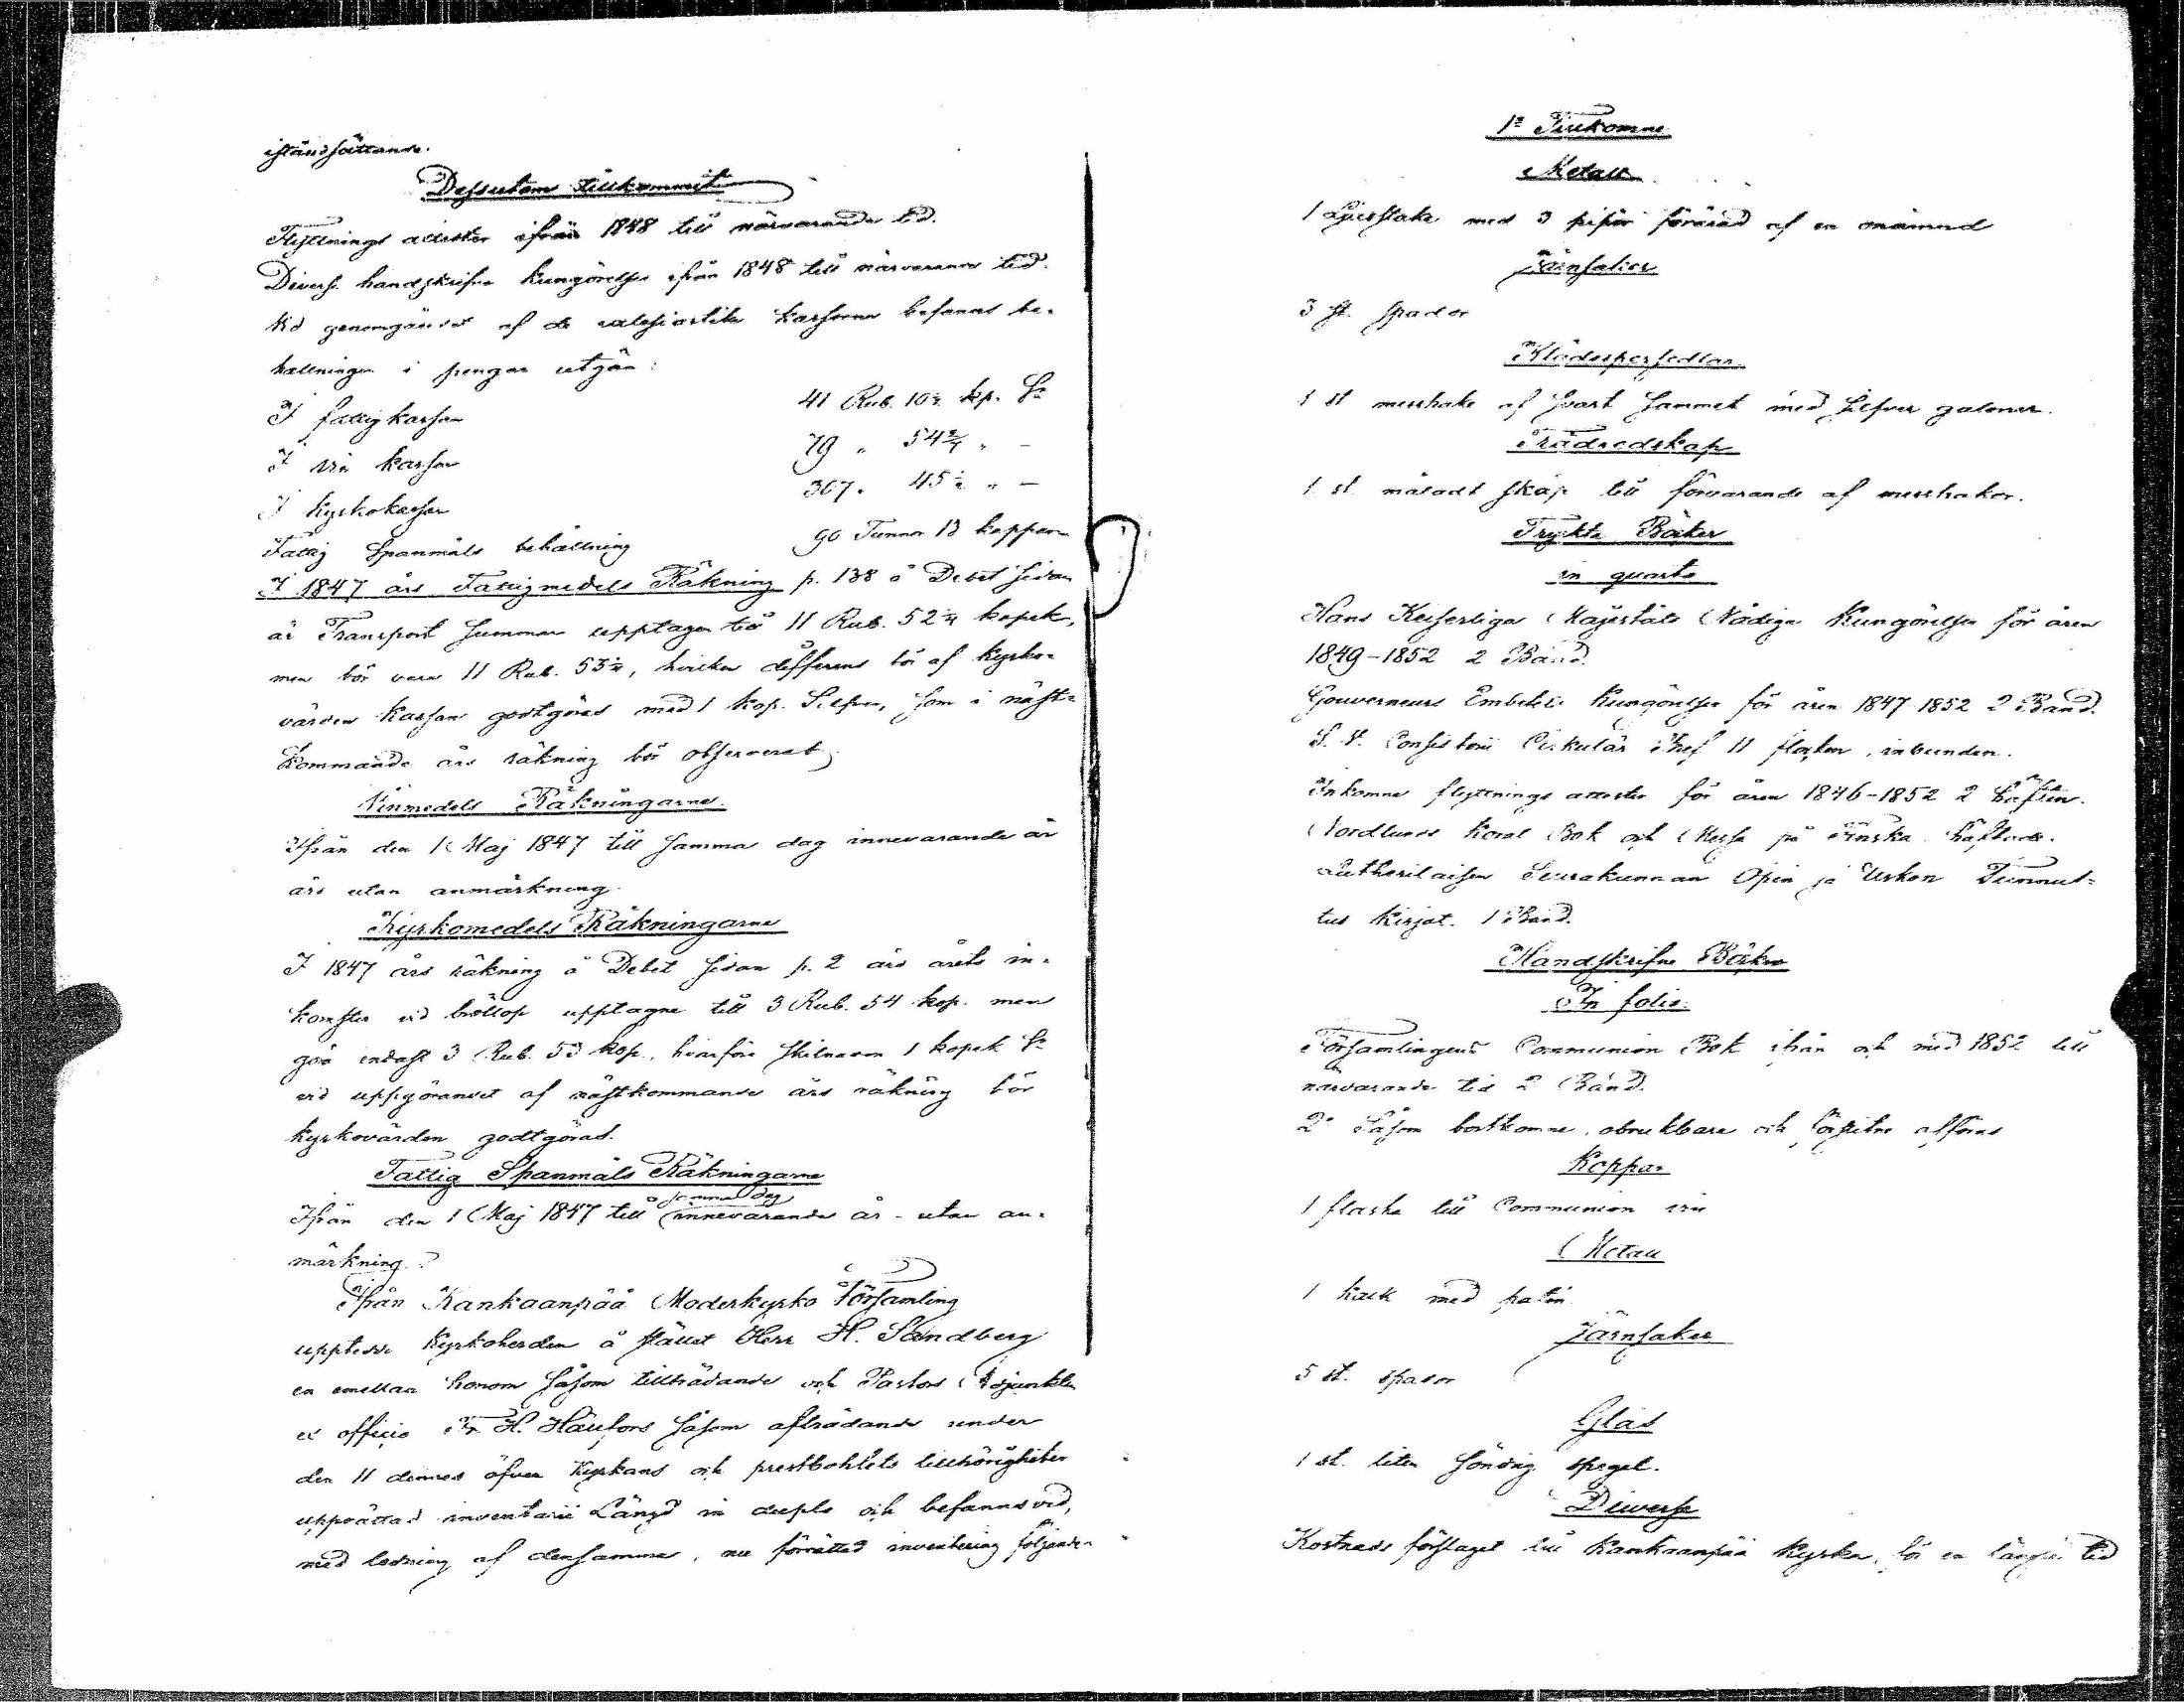 iståndsättande.
Dessutom tillkommit
Flyttnings attester ifrån 1848 till närvarande tid.
Diverse handskrifna kungörelser ifrån 1848 till närvarande tid.
Vid genomgåendet af de eclesiastika kassorna befanns be-
hållningen i pengar utgöra:
I fattigkassan 41 Rub. 10½ kp. Sr
I vin kassan 79 " 54 2/4 " –
I kyrkokassan 367 " 45½ " –
Fattig Spanmåls behållning 90 Tunnor 13 kappar
I 1847 års Fattigmedels Räkning p. 138 å Debet sidan
är Transport Summan upptagen till 11 Rub. 52¼ kopek,
men bör vara 11 Rub. 53¼, hvilken differens bör af kyrko-
värden kassan godtgöras med 1 kop. Silfver, som i näst-
kommande års räkning bör observeras.
Vinmedels Räkningarne.
Ifrån den 1 Maj 1847 till samma dag innevarande år
äro utan anmärkning.
Kyrkomedels Räkningarne
I 1847 års räkning å Debet sidan p. 2 äro årets in-
komster vid bröllop upptagne till 3 Rub. 54 kop. men
göra endast 3 Rub. 53 kop., hvarföre skilnaden 1 kopek Sr
vid uppgörandet af nästkommande års räkning bör
kyrkovärden godtgöras.
Fattig Spanmåls Räkningarne
samma dag
Ifrån den 1 Maj 1847 till innevarande år - utan an-
märkning.
Ifrån Kankaanpää Moderkyrko Församling
uppteddes Kyrkoherden å stället Herr H. Sandberg
en emellan honom såsom tillträdande och Pastors Adjunkten
ex officio H. Hällfors såsom afträdande under
den 11 dennes öfver Kyrkans och prestbohlets tillhörigheter
upprättad inventarii Längd in duplo och befanns vid,
med ledning af densamma, nu förrättad inventering följande
1º Tillkomne
Metall
1 Ljusstake med 3 pipor förärad af en onämnd
Järnsaker
3 st. spador
Klädespersedlar
1 st messhake af svart sammet med silfver galoner.
Trädredskap
1 st. måladt skåp till förvarande af messhakar.
Tryckta Böcker
in quarto
Hans Kejserliga Majestäts Nådiga Kungörelser för åren
1849-1852 2 Band.
Gouverneurs Embetets Kungörelser för åren 1847-1852 2 Band.
Consistorii Cirkulär Bref 11 stycken, inbunden.
Inkomne flyttnings attester för åren 1846-1852 2 häften.
Nordlunds Koral Bok och Messa på Finska. häftade.
Lutherilaisen Seurakunnan Opin ja Uskon Tunnus-
tus kirjat. 1 Band.
Handskrifne Böcker
In folio.
Församlingens Communion Bok ifrån och med 1852 till
närvarande tid 2 Band.
2º Såsom bortkomne, obrukbare och förslitne afföras
Koppar
1 flaska till Communion vin
Metall
1 kalk med patén
Järnsaker
5 st. spador
Glas
1 st. liten söndrig spegel.
Diverse
Kostnads förslaget till Kankaanpää kyrka, för en längre tid